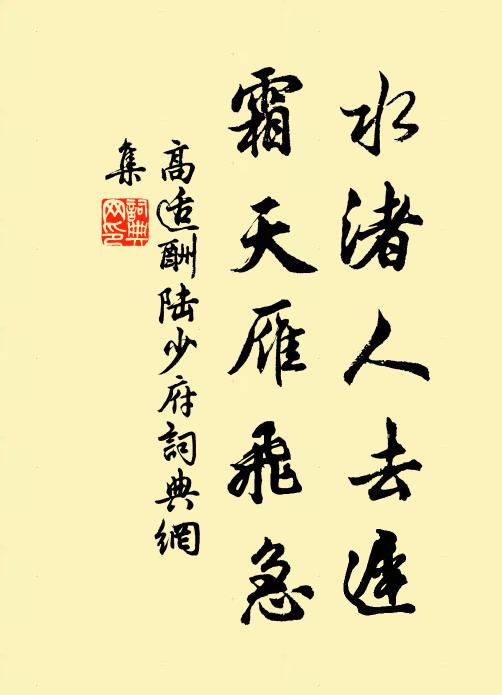 水渚人去遲
霜天雁飛急
高适酬陸少府詞典網
集
詞典網印